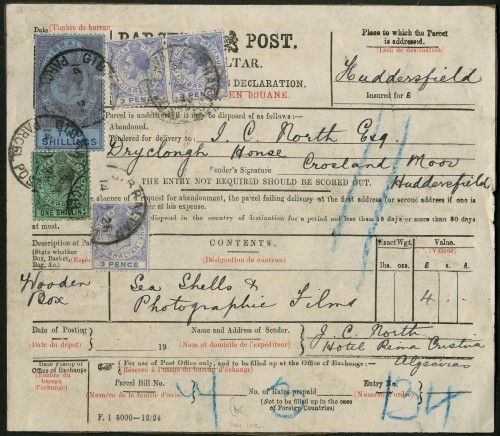 Date Timbre du bureau
PARCEL POST.
Place to which the Parcel
is addressed.
(Lieu de destination)
GIBRALTAR.
DECLARATION.
EN DOUANE.
Huddersfield
Insured for £
GIBRALTAR
SHILLINGS
3 PENCE
3 PENCE
Parcel is undelivered it is to be disposed of as follows:
Abandoned.
Tendered for delivery to: J. C. North Esq.
Dryclough House
Crosland Moor
Sender's Signature
Huddersfield
THE ENTRY NOT REQUIRED SHOULD BE SCORED OUT.
ONE SHILLING
absence of request for abandonment, the parcel failing delivery at the first address (or second address if one is
er at his expense.
disposed in the country of destination for a period not less than 10 days or more than 30 days
at most.
3 PENCE
Description of Parcel
(State whether
Box, Basket,
Bag, &c.)
CONTENTS.
(Désignation du contenu)
Exact Wgt.
Value.
(Valeur)
lbs. ozs.
£ s. d.
Wooden
Box
Sea Shells &
Photographic Films
4
Date of Posting
(Date du dépôt)
19
Name and Address of Sender.
(Nom et domicile de l'expéditeur)
J. C. North
Hotel Reina Cristina
Algeciras
Date Stamp of
Office of Exchange
(Timbre du
bureau
d'échange)
(For use of Post Office only, and to be filled up at the Office of Exchange.)
(Réservé à l'usage du bureau d'échange)
Parcel Bill No.
(Numéro de la feuille d'avis)
No. of Rates prepaid
(Not to be filled up in the case
of Foreign Countries)
Entry No.
134
F. 1 5000—12/24